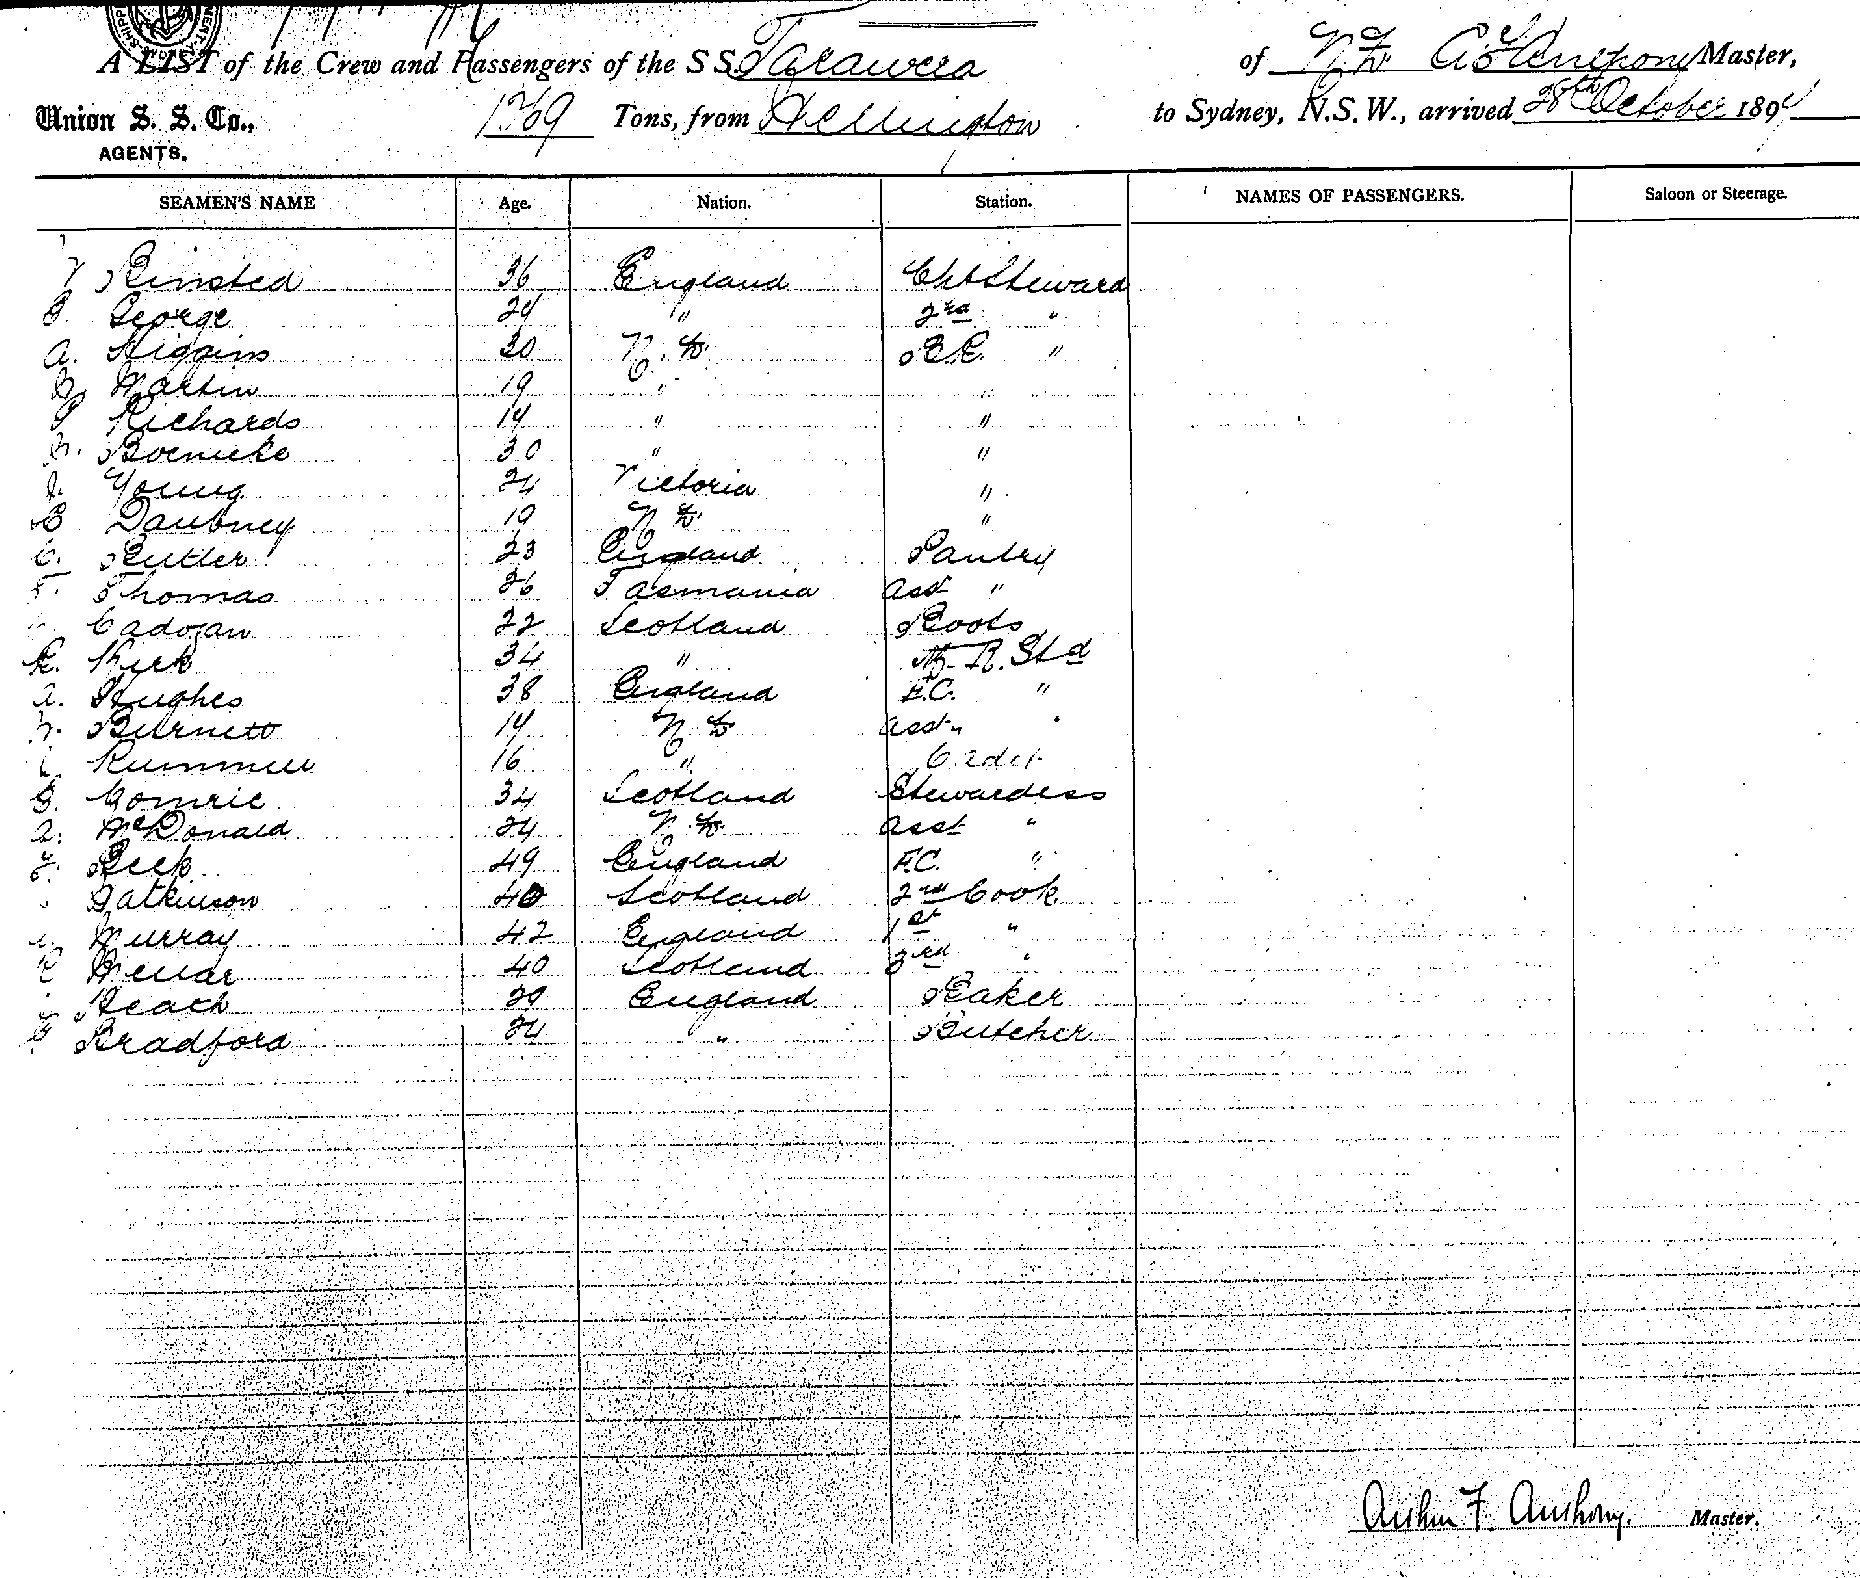 A LIST of the Crew and Passengers of the S S Tarawera of N Z A F Anthony Master,
Union S. S. Co., 1269 Tons, from Wellington to Sydney, N.S.W., arrived 28th October 189
AGENTS.
SEAMEN'S NAME Age. Nation. Station. NAMES OF PASSENGERS. Saloon or Steerage.
Binsted 36 England Chf Steward
George 24 " 2nd "
A. Higgins 30 N. Z. "
Martin 19 " "
Richards 14 " "
30 " "
Young 24 Victoria "
Daubney 19 N Z "
C. Butler 23 England Pantry
F. Thomas 26 Tasmania Asst "
Cadogan 22 Scotland Boots
Kirk 34 " Std
A. Hughes 38 England F.C. "
Burnett 14 N Z Asst "
16 " Cadet
G. Comrie 34 Scotland Stewardess
A. McDonald 24 N. Z. Asst "
Beek 49 England F.C. "
40 Scotland 2nd Cook
Murray 42 England 1st "
40 Scotland 3rd "
Heath 29 England Baker
Bradford 24 " Butcher
Arthur F. Anthony. Master.